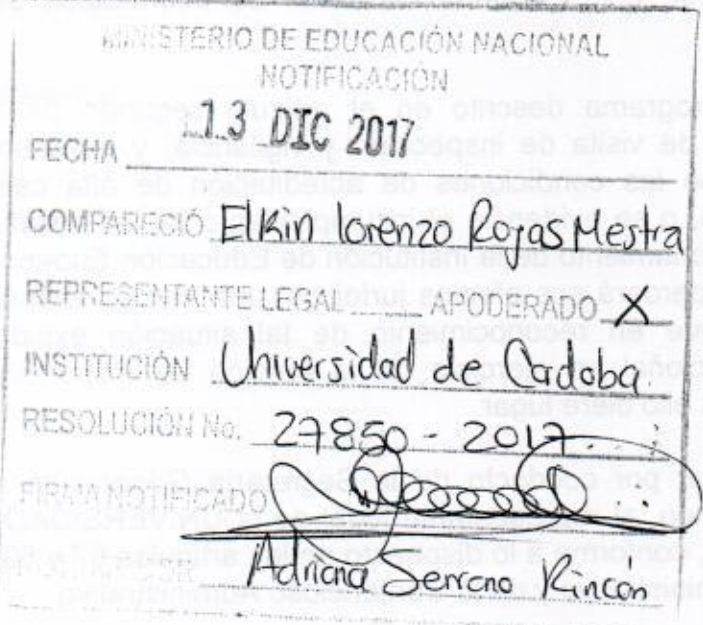 MINISTERIO DE EDUCACIÓN NACIONAL
NOTIFICACIÓN
FECHA 13 DIC 2017
COMPARECIÓ Elkin lorenzo Rojas Mestra
REPRESENTANTE LEGAL ...... APODERADO X
INSTITUCIÓN Universidad de Cordoba
RESOLUCIÓN No. 27850 - 2017.
FIRMA NOTIFICADO
Adriana Serrano Rincón